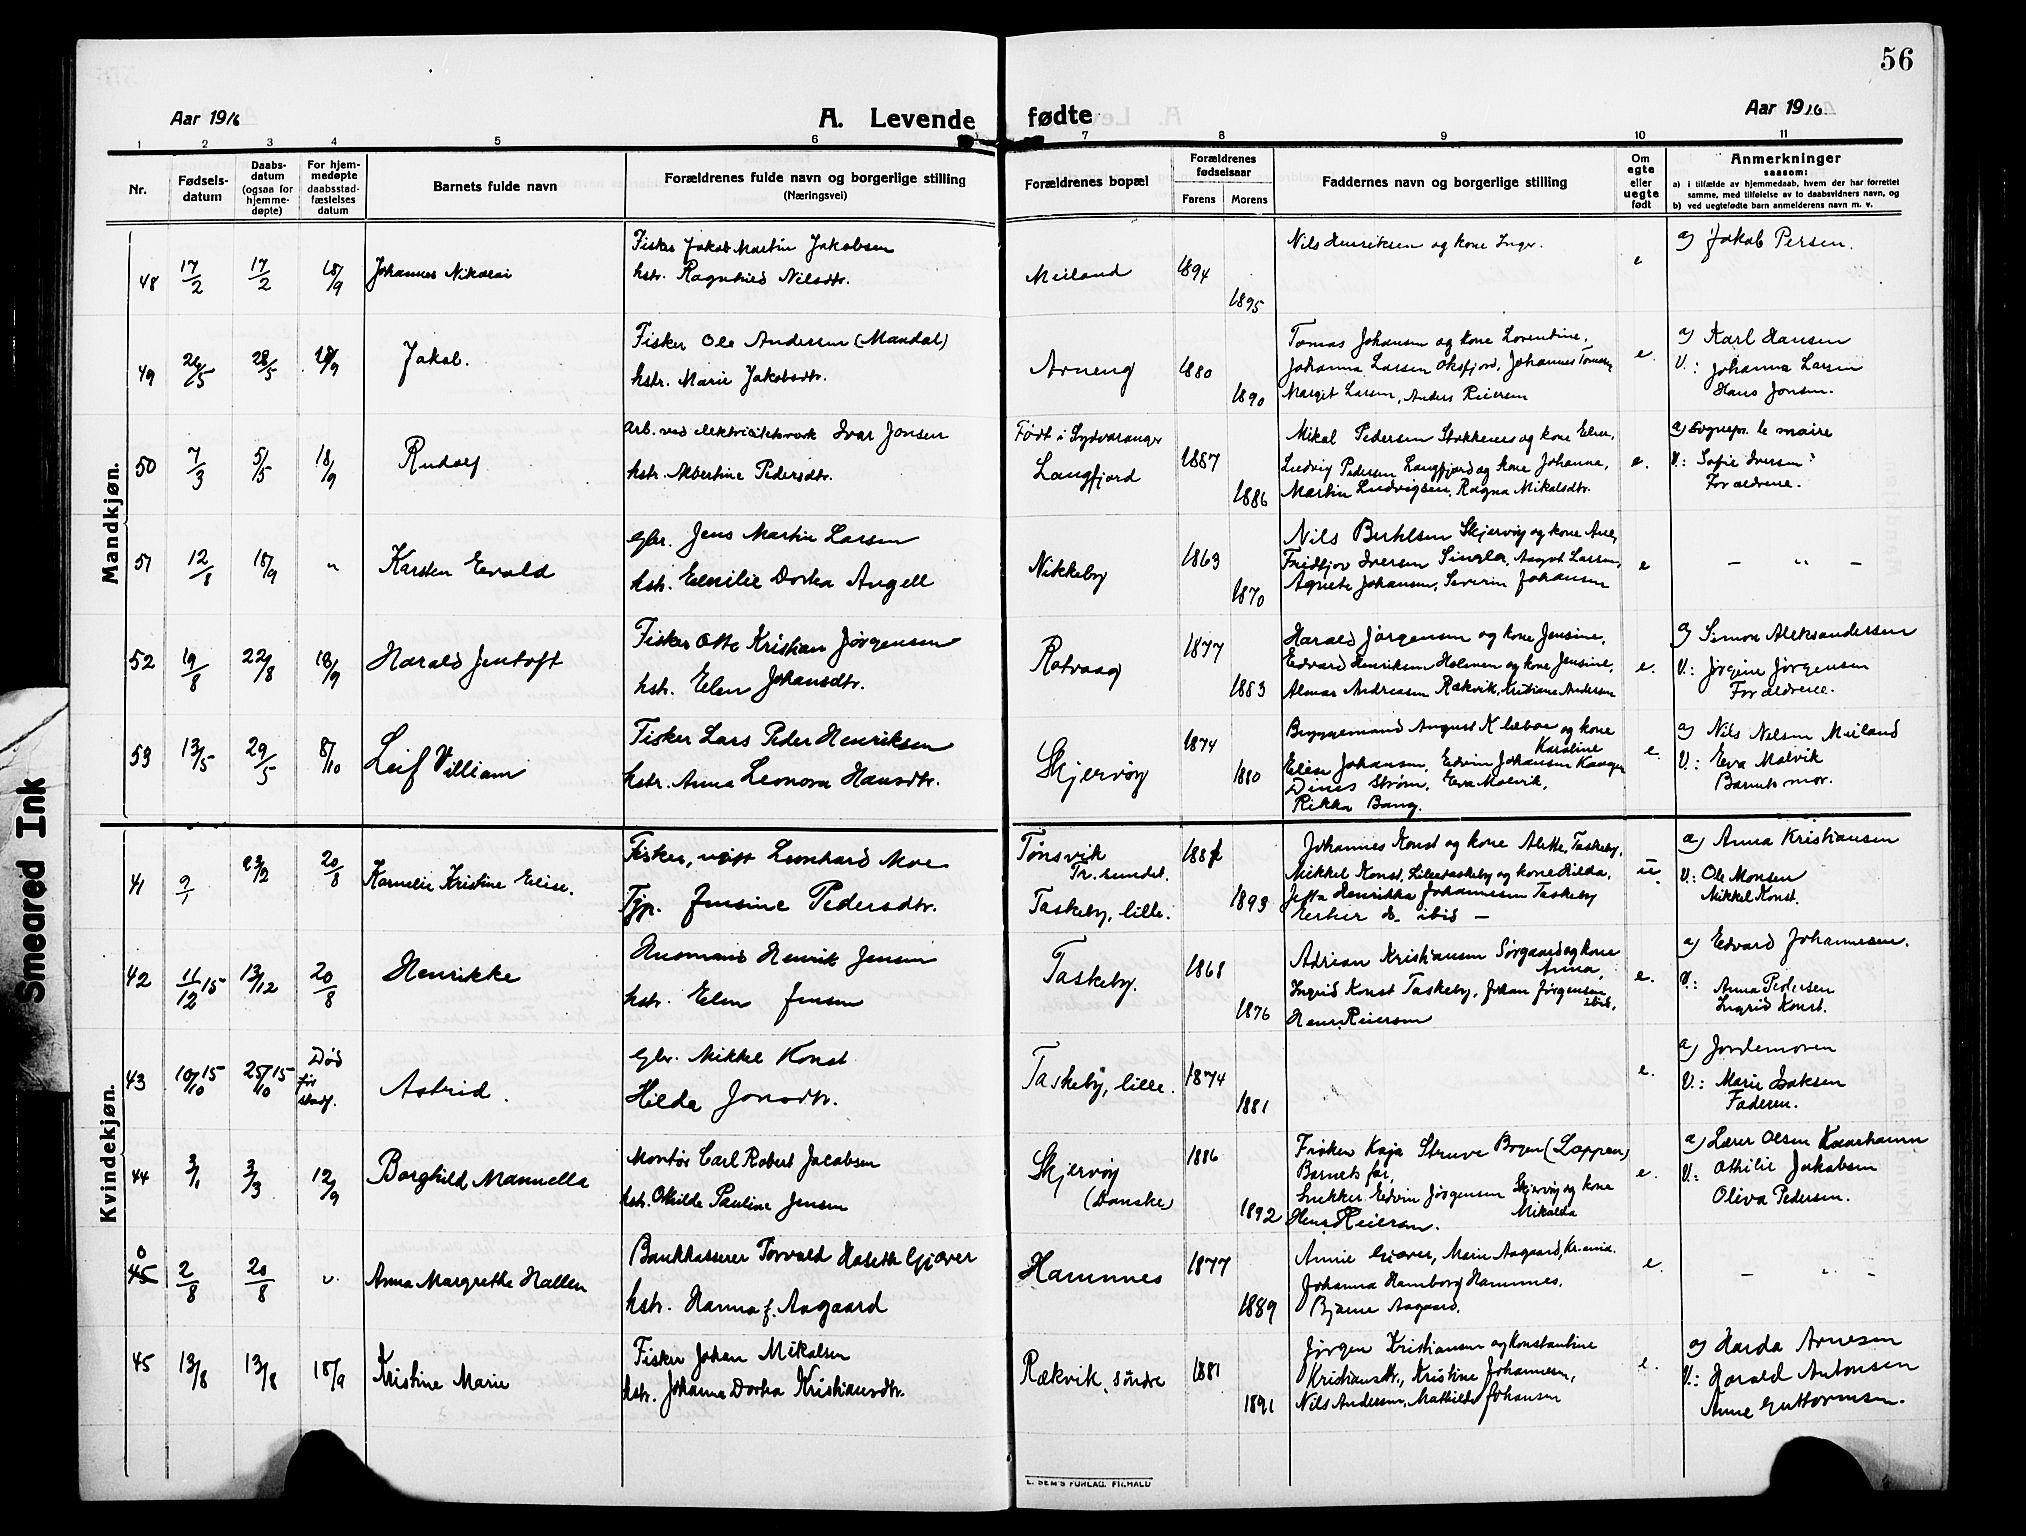 56
Aar 1916
A. Levende
fødte
Aar 1916
1 2 3 4 5 6 7 8 9 10 11
Nr.
Fødsels-
datum
Daabs-
datum
(ogsaa for
hjemme-
døpte)
For hjem-
medøpte
daabsstad-
fæstelses
datum
Barnets fulde navn
Forældrenes fulde navn og borgerlige stilling
(Næringsvei)
Forældrenes bopæl
Forældrenes
fødselsaar
Farens
Morens
Faddernes navn og borgerlige stilling
Om
egte
eller
uegte
født
Anmerkninger
saasom:
a) i tilfælde av hjemmedaab, hvem der har forrettet
samme, med tilføielse av to daabsvidners navn, og
b) ved uegtefødte barn anmelderens navn m. v.
Mandkjøn.
48 17/2 17/2 18/9 Johannes Nikolai
Fisker Jakob Martin Jakobsen
hstr. Ragnhild Nilsdtr.
Meiland 1894 1895
Nils Henriksen og kone Inger.
e
a) Jakob Persen.
49 26/5 28/5 18/9 Jakob.
Fisker Ole Andersen (Mandal)
hstr. Marie Jakobsdtr.
Arneng 1880 1890
Tomas Johansen og kone Lorentine,
Johanna Larsen Oksfjord, Johannes
Margit Larsen, Anders Reiersen
e.
a) Karl Hansen
V.: Johanna Larsen
Hans Jonsen.
50 7/3 5/5 18/9 Rudolf
Arb. ved elektricitetsverk Ivar Jonsen
hstr. Albertine Pedersdtr.
Født i Sydvaranger
Langfjord 1887 1886
Mikal Pedersen Stokkenes og kone Elen,
Ludvig Pedersen Langfjord og kone Johanna,
Martin Ludvigsen, Ragna Mikalsdtr.
e.
a) Sognepr. le maire
V.: Sofie Iversen
Forældrene.
51 12/8 18/9 " Karsten Evald
gbr. Jens Martin Larsen
hstr. Emilie Dorthea Angell
Nikkeby 1863 1870
Nils Skjervøy og kone
Fridtjov Iversen, August Larsen,
Agnete Johansen, Severin Johansen
e
- " -
52 19/8 22/8 18/9 Harald Jentoft
Fisker Otto Kristian Jørgensen
hstr. Elen Johansdtr.
Rotvaag 1877 1883
Harald Jørgensen og kone Jensine,
Edvard Henriksen Holmen og kone Jensine,
Almar Andreasen Rækvik, Kristiane Andersen
e.
a) Simon Aleksandersen
V.: Jørgine Jørgensen
Forældrene.
53 13/5 29/5 8/10 Leif Villiam
Fisker Lars Peder Henriksen
hstr. Anna Leonora Hansdtr.
Skjervøy 1874 1880
Bryggemand August Klæboe og kone
Karoline
Elise Johansen, Edvin Johansen
Strøm, Eva Malvik,
Rikka Bang.
e.
a) Nils Nilsen Meiland
V.: Eva Malvik
Barnets mor.
Kvindekjøn.
41 9/1 23/2 20/8 Kornelie Kristine Elise.
Fisker, ugift Leonhard Moe
Tjp. Jensine Pedersdtr.
Tønsvik
Tr.sundet.
Taskeby, lille. 1893
Johannes Konst og kone Alette, Taskeby,
Mikkel Konst, Lilletaskeby og kone Hilda,
Henrikka Johannesen Taskeby
ibid -
u.
a) Anna Kristiansen
V.: Ole Monsen
Mikkel Konst.
42 11/12 15 13/12 20/8 Henrikke
Husmand Henrik Jensen
hstr. Elen Jensen
Taskeby. 1868 1876
Adrian Kristiansen Sørgaard og kone
Anna,
Ingrid Konst Taskeby, Johan Jørgensen
ibid.
Reiersen
e.
a) Edvard Johannesen.
V.: Anna Pedersen
Ingrid Konst.
43 10/10 15 25/10 15 Død
før
stadf.
Astrid.
Gbr. Mikkel Konst
Hilda Jonsdtr.
Taskeby, lille. 1874 1881
e.
a) Jordemoren
V.: Marie Isaksen
Faderen.
44 3/1 3/3 12/9 Borghild Manuella
Montør Carl Robert Jacobsen
hstr. Othilde Pauline Jensen
Skjervøy
(Danske) 1886 1892
Frøken Kaja Struve Bogen (Loppen)
Barnets far,
Snekker Edvin Jørgensen Skjervøy og kone
Mikalda
Reiersen.
e.
a) Lærer Olsen
V.: Othilie Jakobsen
Oliva Pedersen.
o
45 2/8 20/8 " Anna Margrethe Hallen
Bankkasserer Torvald Giæver
hstr. Hanna f. Aagaard
Hamnnes 1877 1889
Annie Giæver, Marie Aagaard, Kr.ania.
Johanna Hamborg Hamnnes,
Bjarne Aagaard.
e.
- " -
45 13/8 13/8 18/9 Kristine Marie
Fisker Johan Mikalsen
hstr. Johanna Dorthea Kristiansdtr.
Rækvik, søndre 1881 1891
Jørgen Kristiansen og Konstantine
Kristiansdtr., Kristine Johannesen,
Nils Andersen, Mathilde Johansen
e.
a) Harda Arnesen
V.: Harald Antonsen
Anne Guttormsen.
L. SEM'S FORLAG, FR.HALD
Smeared Ink